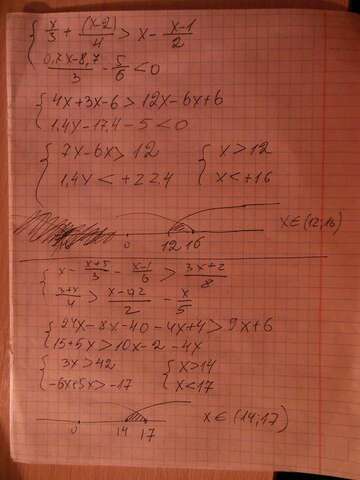 x/3 + (x-2)/4 > x - (x-1)/2
(0,7x-8,7)/3 - 5/6 < 0
4x+3x-6 > 12x-6x+6
1,4x-17,4-5<0
7x-6x>12 x>12
1,4x<+22,4 x<+16
0 12 16 x∈(12;16)
x - (x+5)/3 - (x-1)/6 > (3x+2)/8
(3+x)/4 > (x-0,2)/2 - x/5
24x-8x-40-4x+4>9x+6
15+5x>10x-2-4x
3x>42 x>14
-6x+5x>-17 x<17
0 14 17 x∈(14;17)